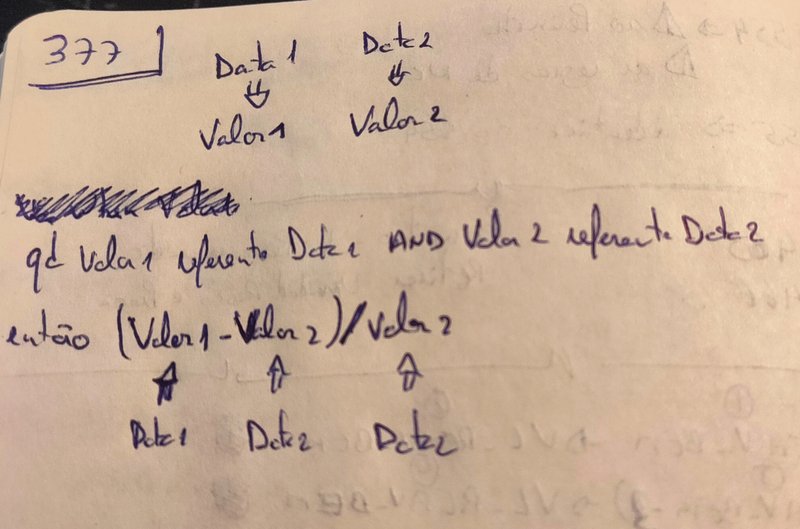 377
Data 1 Data 2
Valor 1 Valor 2
qd Valor 1 referente Data 1 AND Valor 2 referente Data 2
então (Valor 1 - Valor 2) / Valor 2
Data 1 Data 2 Data 2